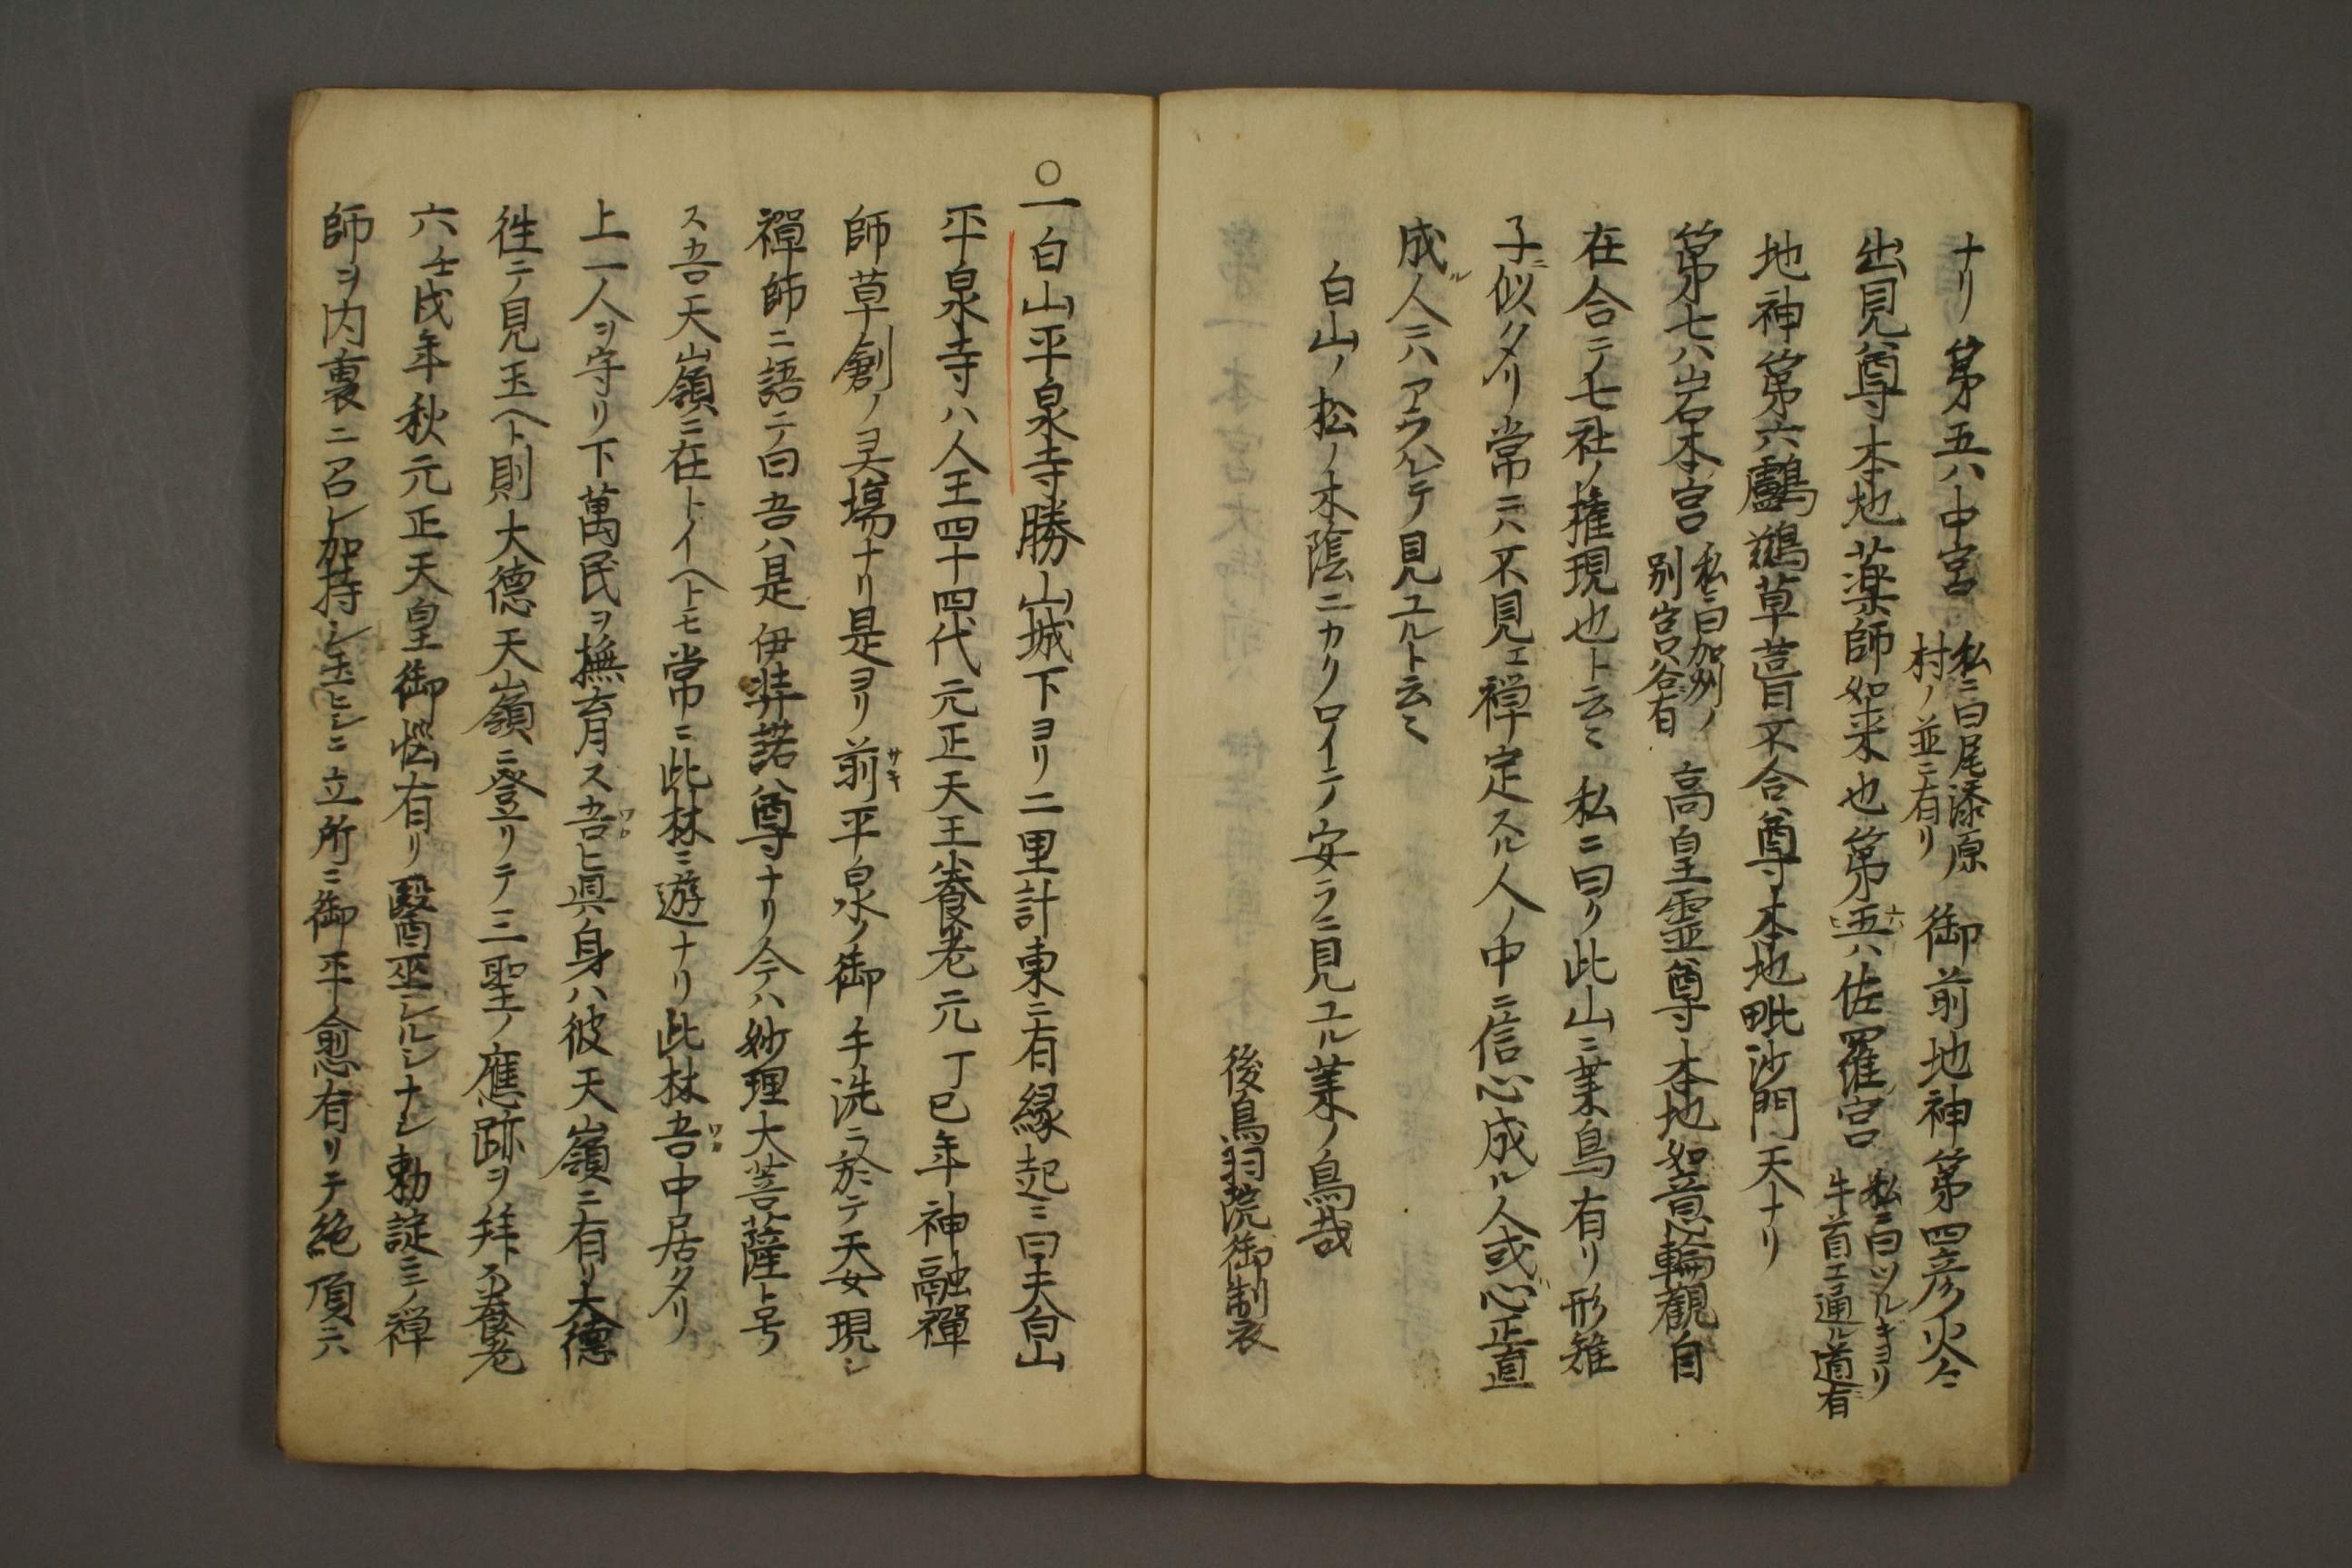 ナリ 第五ハ中宮 私ニ曰尾添原村ノ並ニ有リ 御前地神第四彦火々
出見尊本地薬師如来也第五六ハ佐羅宮 私ニ曰ツルギヨリ牛首エ通ル道有
地神第六鸕鶿草葺不合尊本地毗沙門天ナリ
第七ハ岩本宮 私ニ曰加州ノ別宮谷有 高皇霊尊本地如意輪観自
在合ニノ七社ノ権現也ト云々 私ニ曰ク此山ニ鳥有リ形雉
子ニ似タメリ常ニハ不見エ禅定スル人ノ中ニ信心成ル人或心正直
成ル人ニハアラハレテ見ユルト云々
白山ノ松ノ木陰ニカクロイテ安ラニ見ユルノ鳥哉
後鳥羽院御制衣
○一白山平泉寺勝山城下ヨリ二里計東ニ有縁起ニ曰夫白山
平泉寺ハ人王四十四代元正天王養老元丁巳年神融禪
師草創ノ場ナリ是ヨリ前サキ平泉ノ御手洗ニ於テ天女現シ
禪師ニ語テ曰吾ハ是伊弉諾尊ナリ今ハ妙理大菩薩ト号
ス吾天嶺ニ在トイヘトモ常ニ此林ニ遊ナリ此林吾ワカ中居タリ
上一人ヲ守リ下萬民ヲ撫育ス吾ワカ真身ハ彼天嶺ニ有リ大徳
徃テ見玉ヘト則大徳天嶺ニ登リテ三聖ノ應跡ヲ拜ス養老
六壬戌年秋元正天皇御悩有リ醫巫シルシナシ勅諚ニノ禅
師ヲ内裏ニ召シ加持シ玉ヒシニ立所ニ御平愈有リテ絶頂ニハ